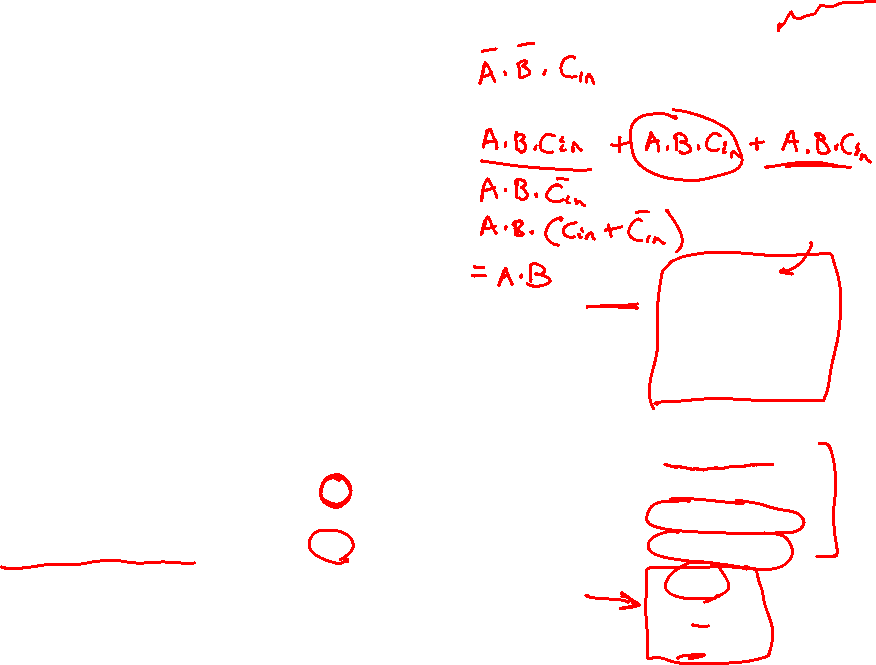 A̅.B̅.Cin
A.B.Cin + A.B.Cin + A.B.Cin
A.B.C̅in
A.B.(Cin + C̅in)
= A.B